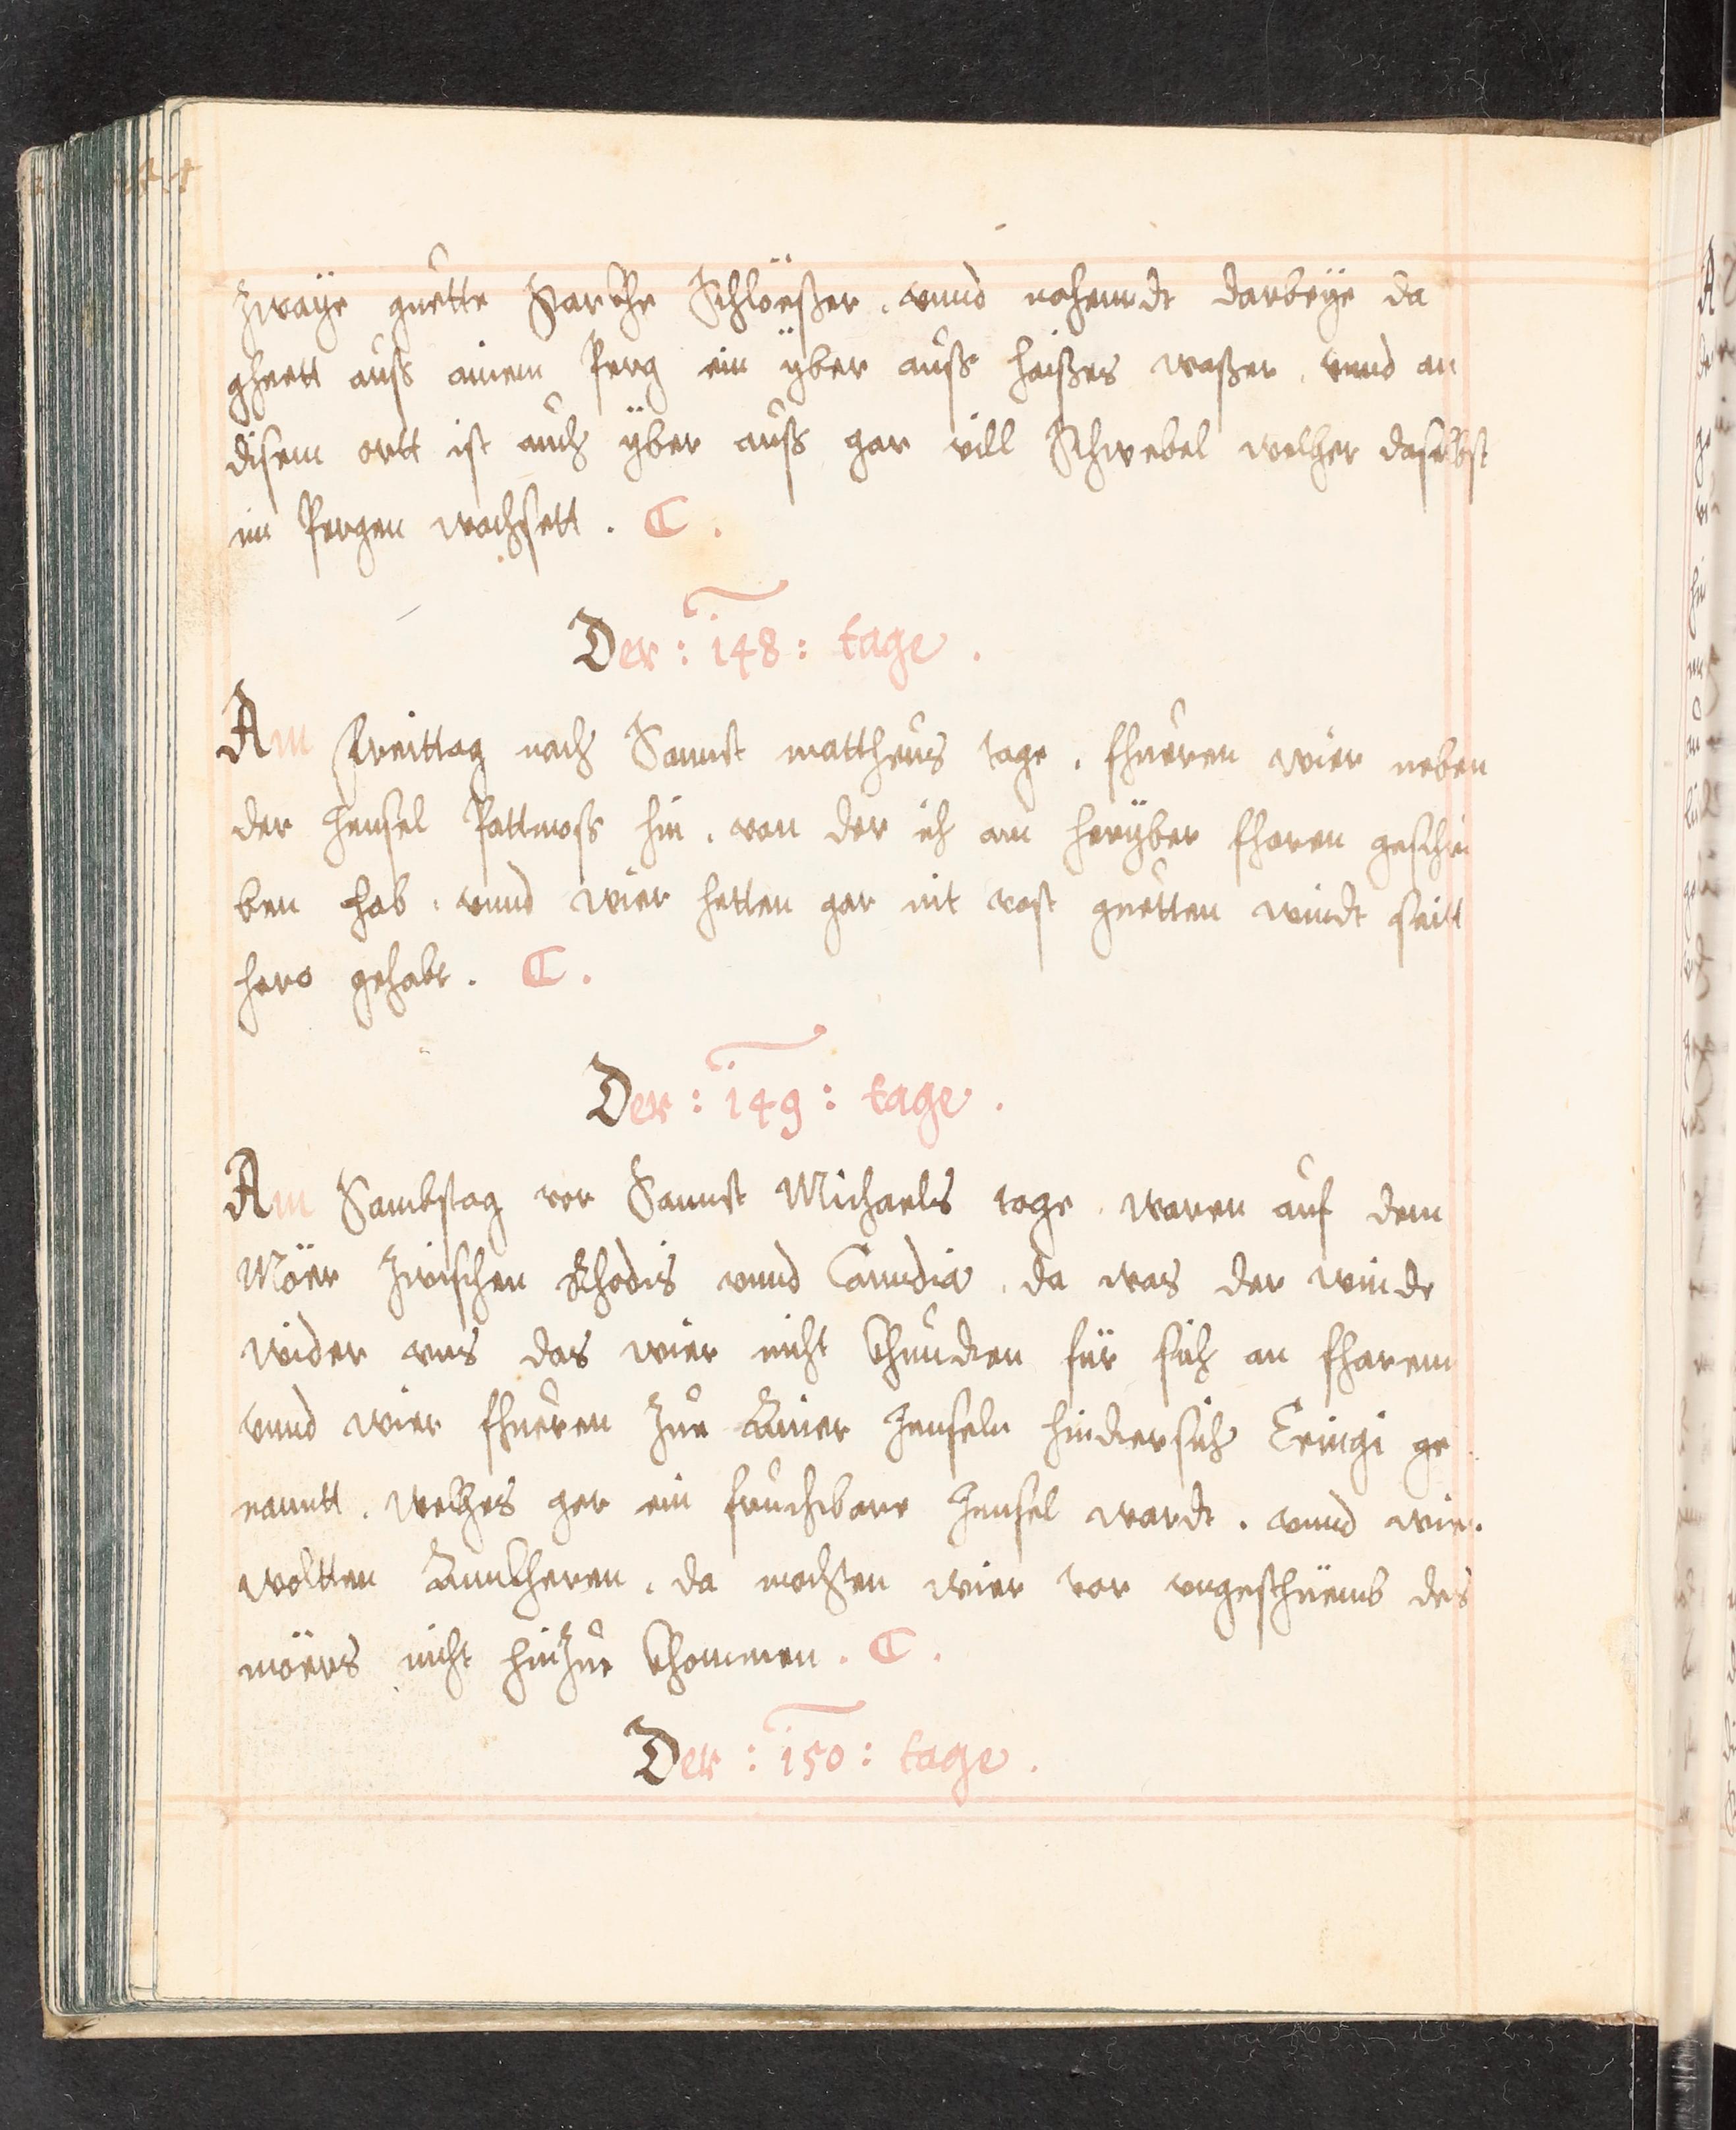 zwaÿe guette Starckhe Schlöeßer . vnnd nahenndt darbeÿe da
gheett auß ainem Perg ein ÿber auß haißes waßer . vnnd an
disem ortt ist auch ÿber auß gar vill Schwebel welher daselbst
im Pergen wachsett . C .
Der : 148 : tage .
Am Freittag nach Sannct mattheus tage . fhueren wier neben
der Jensel Pattmoß hin . von der ich am herÿber fharen geschri
ben hab . vnnd wier hetten gar nit vast guetten windt seitt
hero gehabt . C .
Der : 149 : tage .
Am Sambstag vor Sannct Michaels tage . waren auf dem
Möer zwischen Rhodis vnnd Canndia . da was der winde
wider vns das wier nicht khundten für sich an fharenn
vnnd wier fhueren zue Ainer Jenseln hindersich Eringi ge
nanntt . welhes gar ein fruchtbare Jensel wardt . vnnd wier
woltten Annckheren . da mochten wier vor vngesthüemb des
möers nicht hinzue khommen . C .
Der : 150 : tage .